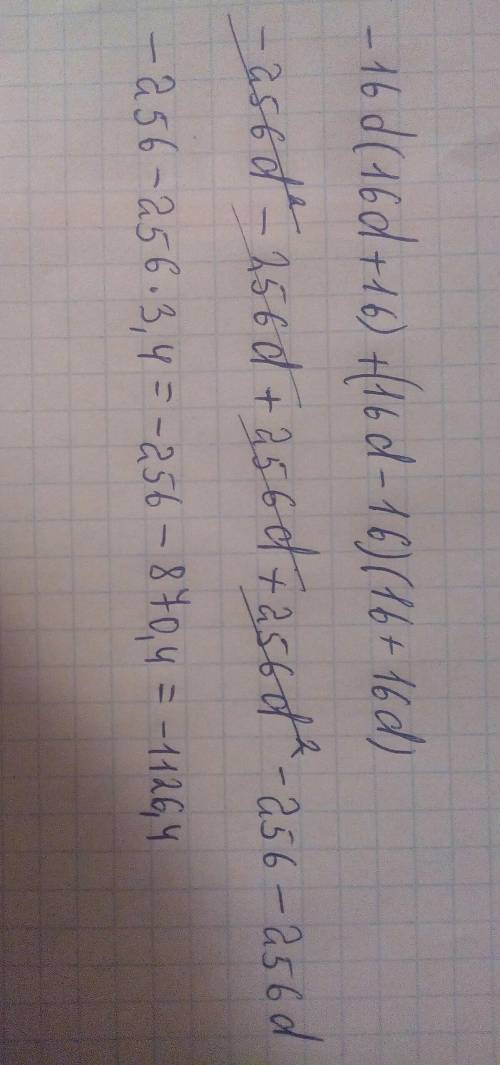 -16d(16d+16)+(16d-16)(16+16d)
-256d²-256d+256d+256d²-256-256d
-256-256·3,4=-256-870,4=-1126,4